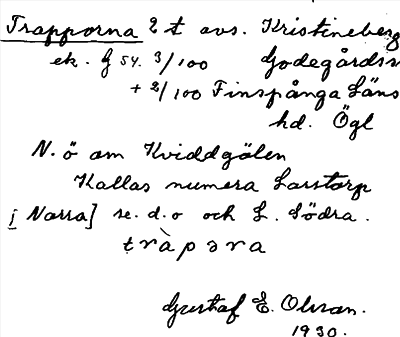 Trapporna 2 t avs. Kristineberg
ek. G 54. 3/100 Godegårds
+ 2/100 Finspånga Läns
hd. Ögl
N. ö om Kviddgölen
Kallas numera Larstorp
[Norra] se. d. o och L. Södra.
tràpəra
Gustaf E. Olsson.
1930.